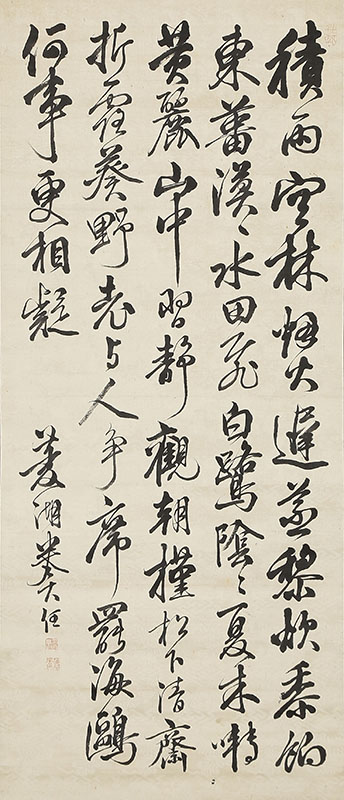 積雨空林烟火遲蒸黎炊黍餉
東菑漠〻水田飛白鷺陰〻夏木囀
黄麗山中習静觀朝槿松下清齋
折露葵野老与人争席罷海鷗
何事更相疑
菱湖巻大任